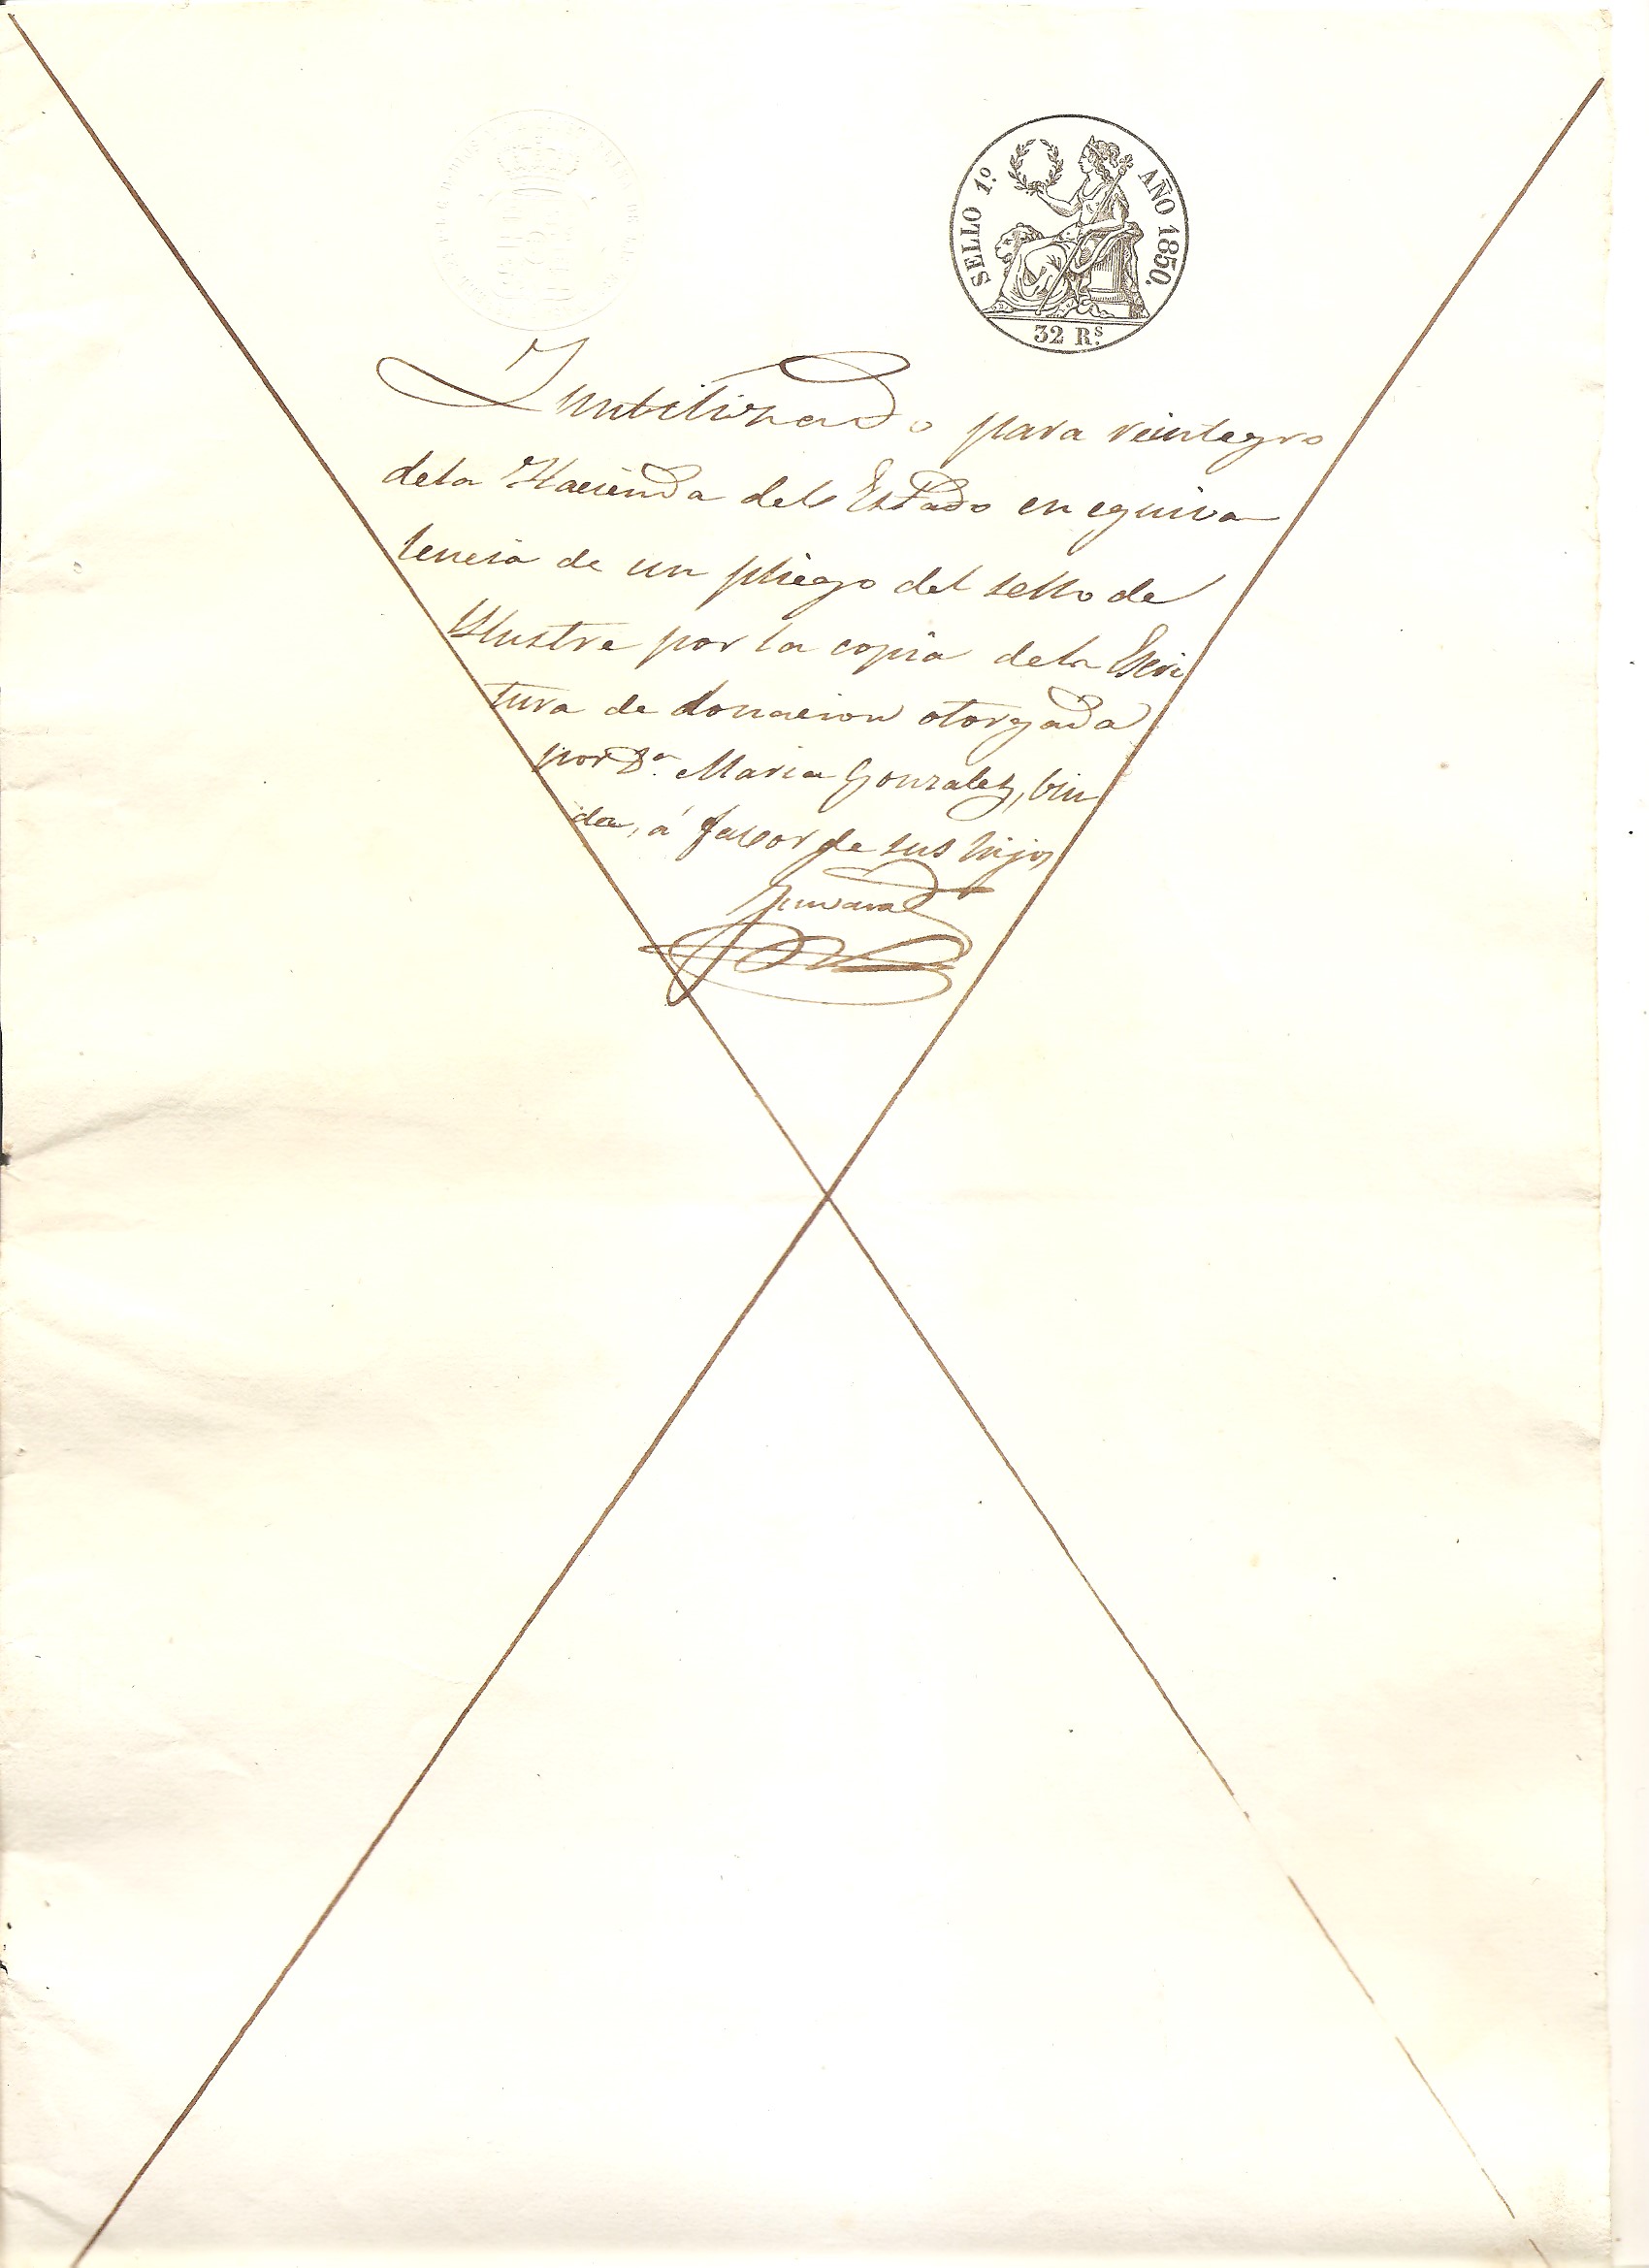 SELLO 1º. AÑO 1850.
32 Rs.
Inutilizado para reintegro
dela Hacienda del Estado en equiva
lencia de un pliego del sello de
Yllustre por la copia dela Escri
tura de donacion otorgada
por Dª. Maria Gonzalez, viu
da, á favor de sus hijos